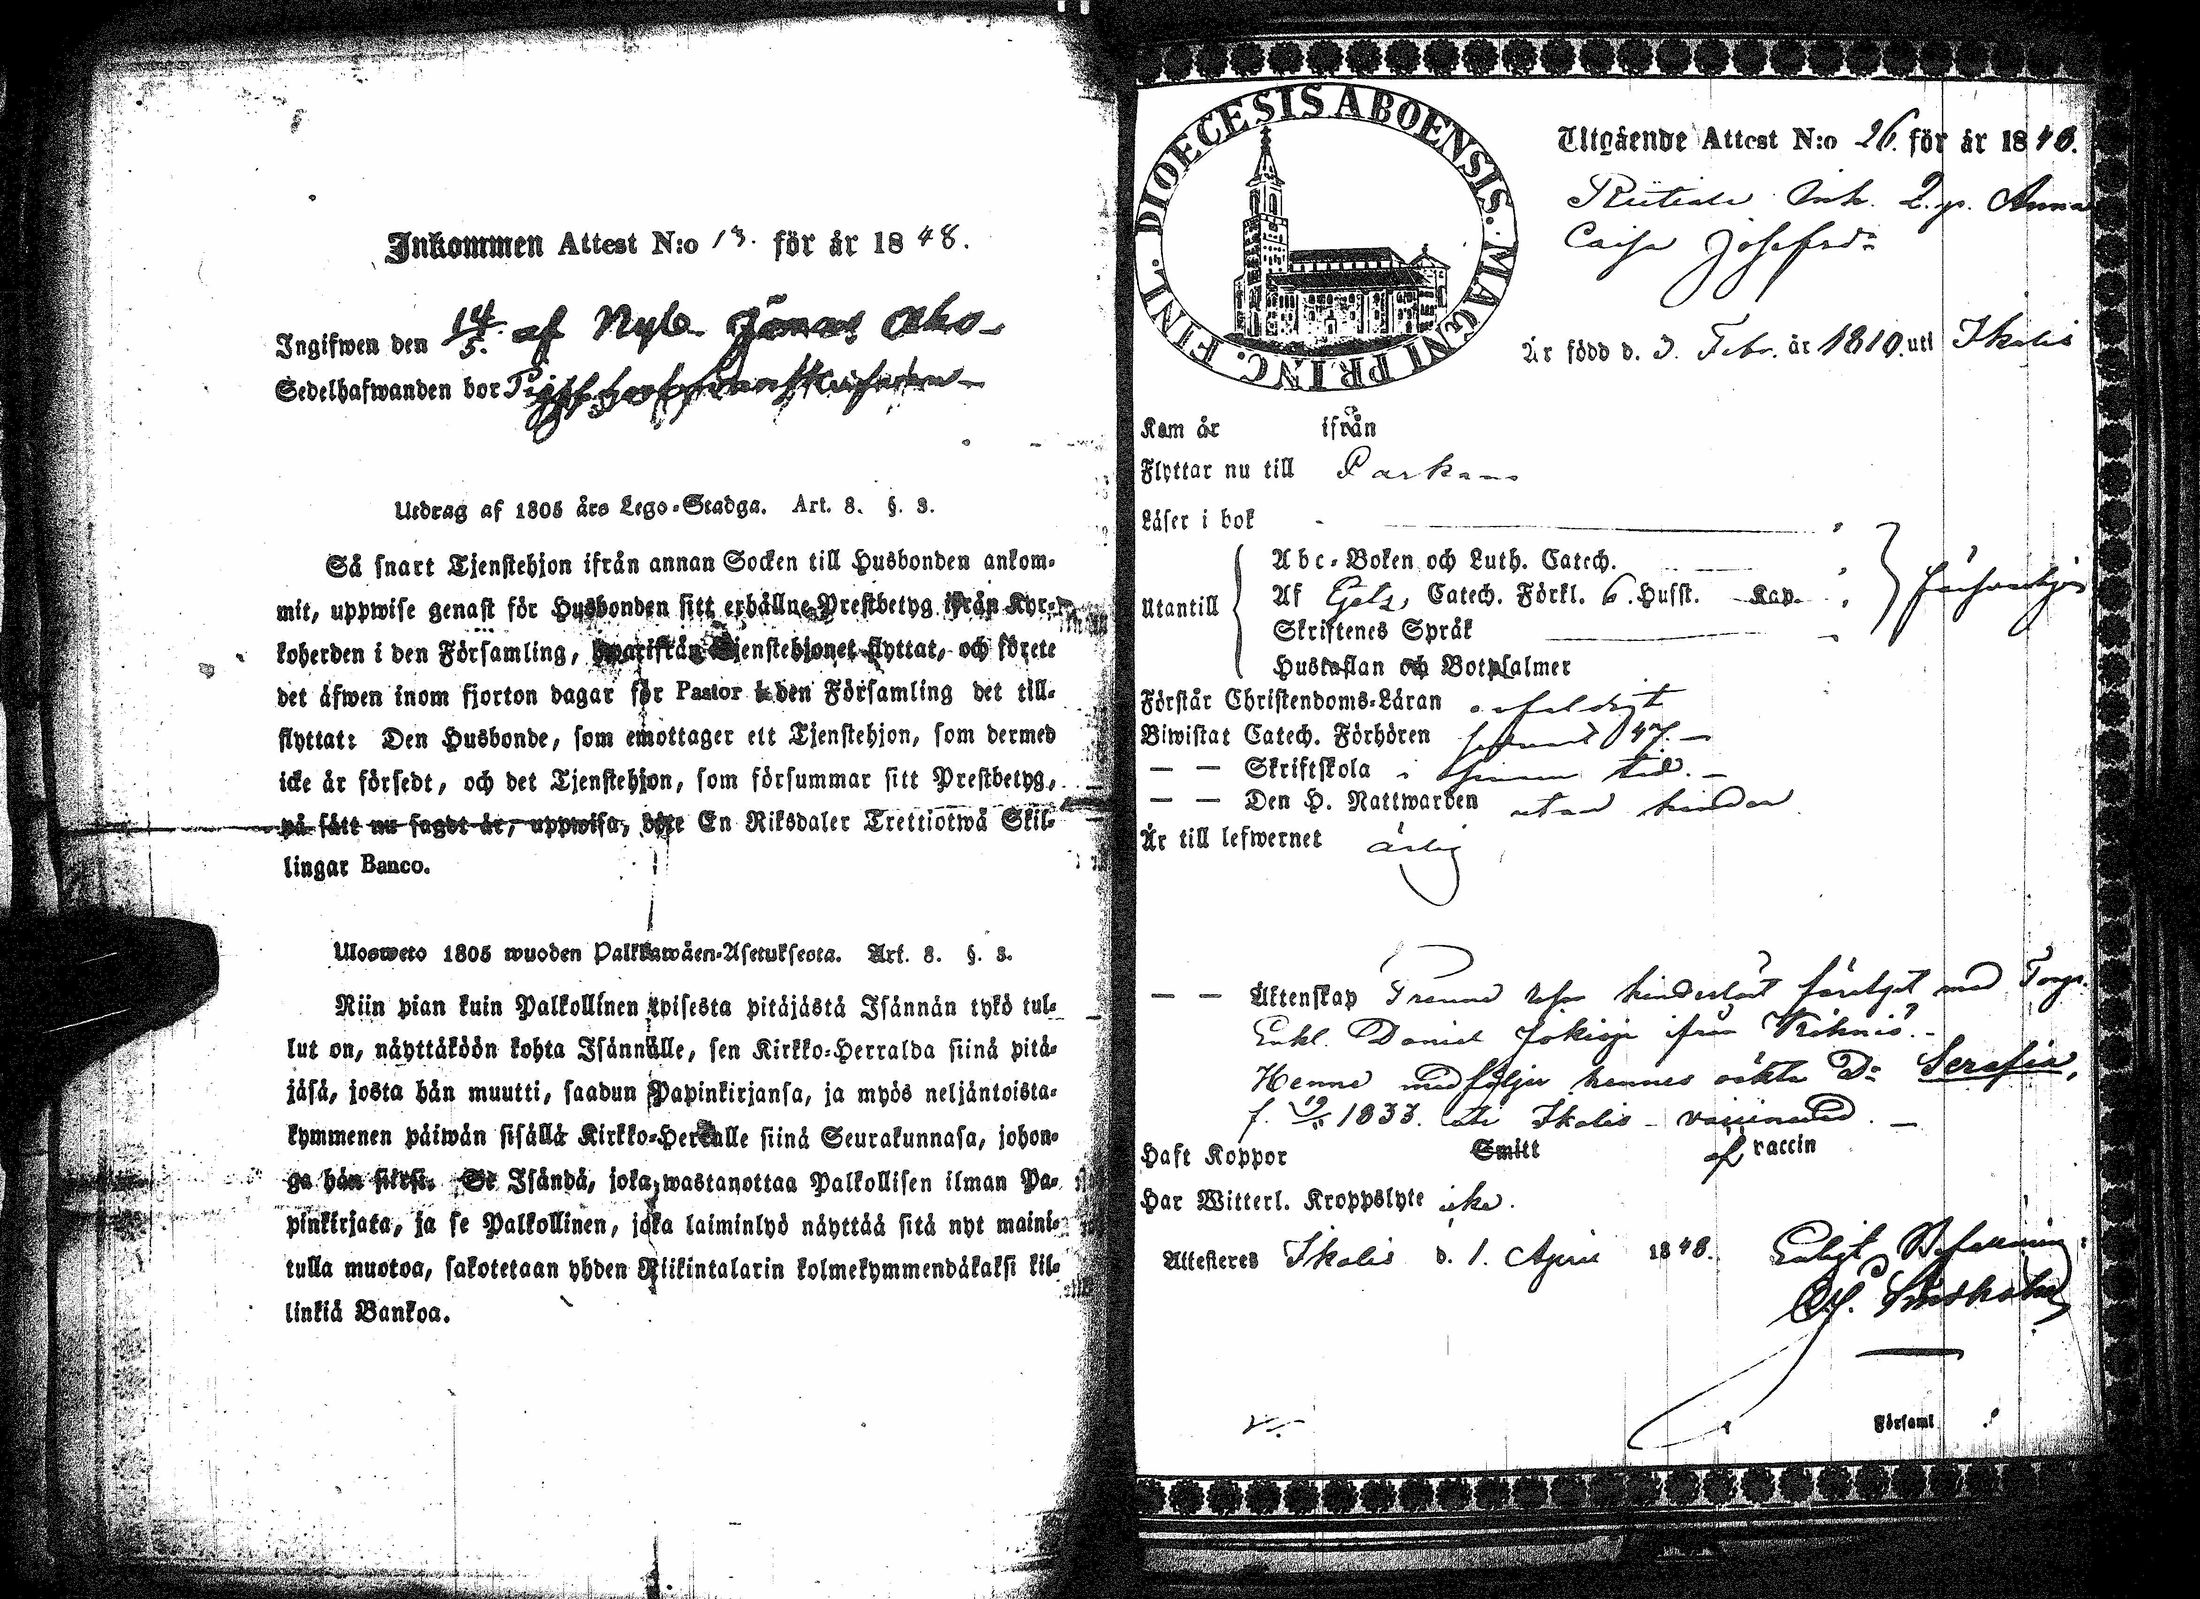 Inkommen Attest N:o 13. för år 1848.
Ingifwen den 14/5. af Nyb.
Sedelhafwanden bor
Utdrag af 1805 års Lego-Stadga. Art. 8. §. 3.
Så snart Tjenstehjon ifrån annan Socken till Husbonden ankom-
mit, uppwise genast för Husbonden sitt erhållne Prestbetyg ifrån Kyr-
koherden i den Församling, hwarifrån Tjenstehjonet flyttat, och förete
det äfwen inom fjorton dagar för Pastor i den Församling det till-
flyttat: Den Husbonde, som emottager ett Tjenstehjon, som dermed
icke är försedt, och det Tjenstehjon, som försummar sitt Prestbetyg,
på sätt nu sagdt är, uppwisa, böte En Riksdaler Trettiotwå Skil-
lingar Banco.
Ulosweto 1805 wuoden Palkkawäen-Asetuksesta. Art. 8. §. 3.
Niin pian kuin Palkollinen toisesta pitäjästä Isännän tykö tul-
lut on, näyttäköön kohta Isännälle, sen Kirkko-Herralda siinä pitä-
jäsä, josta hän muutti, saadun Papinkirjansa, ja myös neljäntoista-
kymmenen päiwän sisällä Kirkko-Herralle siinä Seurakunnasa, johon-
ga hän siirsi. Se Isändä, joka wastanottaa Palkollisen ilman Pa-
pinkirjata, ja se Palkollinen, joka laiminlyö näyttää sitä nyt maini-
tulla muotoa, sakotetaan yhden Riikintalarin kolmekymmendäkaksi kil-
linkiä Bankoa.
DIOECESIS ABOENSIS. MAGNI PRINC. FINL.
Utgående Attest N:o 26. för år 1848.
Inh. Anna
Caisa Josefsdr
Är född d. 3. Febr. år 1810. uti Ikalis
Kom år ifrån
Flyttar nu till Parkano
Läser i bok
Abc-Boken och Luth. Catech.
Utantill Af Catech. Förkl. 6. Hufst. Kap.
Skriftenes Språk
Hustaflan och Botpsalmer
Förstår Christendoms-Läran
Biwistat Catech. Förhören 47.
— — Skriftskola i sinom tid.
— — Den H. Nattwarden utan hinder
Är till lefwernet ärlig
— — Äktenskap Trenne hinderlöst med
Enkl. Daniel ifrån
Henne medföljer hennes äkta Dr Serafia,
f. 1833. uti Ikalis vaccinerad.
Haft Koppor Smitt af vaccin
Har Witterl. Kroppslyte icke.
Attesteres Ikalis d. 1. April 1848. Enligt Befallning
Församl